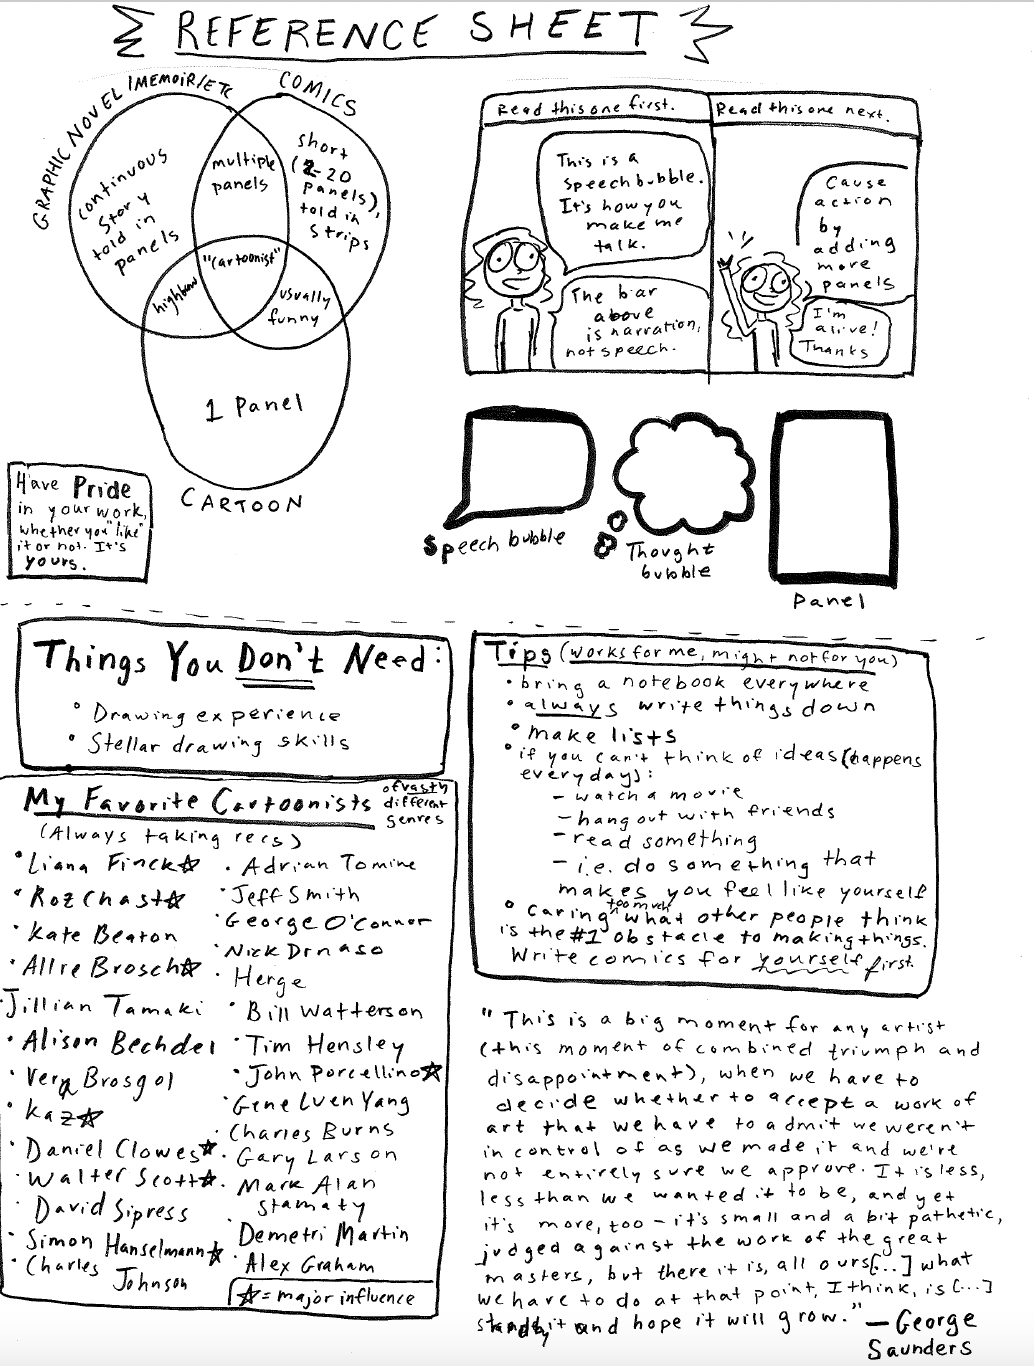 REFERENCE SHEET
GRAPHIC NOVEL/MEMOIR/ETC
COMICS
continuous
story
told in
panels
multiple
panels
short
(2-20
panels),
told in
strips
"cartoonist"
highbrow
usually
funny
1 Panel
CARTOON
Have Pride
in your work,
whether you "like"
it or not. It's
yours.
Read this one first.
This is a
speech bubble.
It's how you
make me
talk.
The bar
above
is narration,
not speech.
Read this one next.
Cause
action
by
adding
more
panels
I'm
alive!
Thanks
Speech bubble
Thought
bubble
Panel
Things You Don't Need:
• Drawing experience
• Stellar drawing skills
My Favorite Cartoonists
of vastly
different
genres
(Always taking recs)
• Liana Finck☆
• Roz Chast☆
• Kate Beaton
• Allie Brosch☆
• Jillian Tamaki
• Alison Bechdel
• Vera Brosgol
• Kaz☆
• Daniel Clowes☆
• Walter Scott☆
• David Sipress
• Simon Hanselmann☆
• Charles
Johnson
• Adrian Tomine
• Jeff Smith
• George O'Connor
• Nick Drnaso
• Herge
• Bill Watterson
• Tim Hensley
• John Porcellino☆
• Gene Luen Yang
• Charles Burns
• Gary Larson
• Mark Alan
Stamaty
• Demetri Martin
• Alex Graham
☆= major influence
Tips (works for me, might not for you)
• bring a notebook everywhere
• always write things down
• make lists
• if you can't think of ideas (happens
everyday):
- watch a movie
- hang out with friends
- read something
- i.e. do something that
makes you feel like yourself
• caring too much what other people think
is the #1 obstacle to making things.
Write comics for yourself first.
"This is a big moment for any artist
(this moment of combined triumph and
disappointment), when we have to
decide whether to accept a work of
art that we have to admit we weren't
in control of as we made it and we're
not entirely sure we approve. It is less,
less than we wanted it to be, and yet
it's more, too - it's small and a bit pathetic,
judged against the work of the great
masters, but there it is, all ours[...] what
we have to do at that point, I think, is [...]
stand by it and hope it will grow."
— George
Saunders